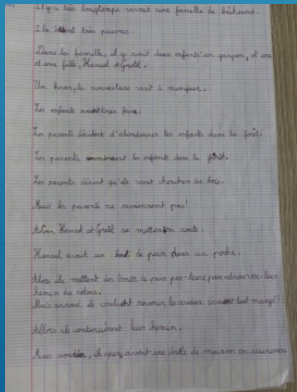 Il y a très longtemps vivait une famille de bûcherons.
Ils étaient très pauvres.
Dans la famille, il y avait deux enfants: un garçon, et une
et une fille, Hansel et Gretel.
Un hiver, la nourriture vint à manquer.
Les enfants
Les parents décident d'abandonner les enfants dans la forêt.
Les parents emmènent les enfants dans la forêt.
Les parents disent qu'ils vont chercher du bois.
Mais les parents ne reviennent pas!
Alors Hansel et Gretel se mettent en route.
Hansel avait un bout de pain dans sa poche.
Alors ils mettent des bouts de pain pour retrouver leur
chemin du retour.
Mais quand ils veulent revenir les oiseaux avaient tout mangé!
Allors ils continuèrent leur chemin.
Mais soudain, ils aperçurent une drôle de maison en sucreries